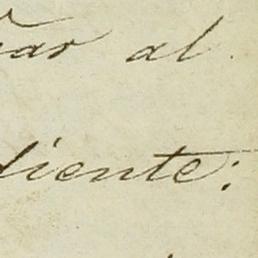 ar al
diente: